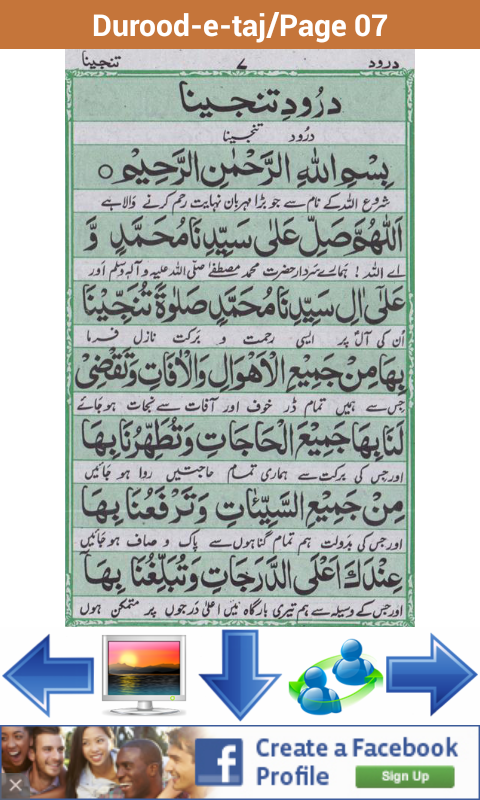 Durood-e-taj/Page 07
درود ۷ تنجینا
درُودِ تنجینا
درُود تنجینا
بِسْمِ اللهِ الرَّحْمٰنِ الرَّحِيْمِ ○
شروع اللہ کے نام سے جو بڑا مہربان نہایت رحم کرنے والا ہے
اَللّٰهُمَّ صَلِّ عَلٰى سَيِّدِنَا مُحَمَّدٍ وَّ
اے اللہ ! ہمارے سردار حضرت محمد مصطفےٰ صلی اللہ علیہ وآلہ وسلم اور
عَلٰٓى اٰلِ سَيِّدِنَا مُحَمَّدٍ صَلٰوةً تُنَجِّيْنَا
اُن کی آل پر ایسی رحمت و برکت نازل فرما
بِهَا مِنْ جَمِيْعِ الْاَهْوَالِ وَالْاٰفَاتِ وَتَقْضِىْ
جس سے ہمیں تمام ڈر خوف اور آفات سے نجات ہو جائے
لَنَا بِهَا جَمِيْعَ الْحَاجَاتِ وَتُطَهِّرُنَا بِهَا
اور جس کی برکت سے ہماری تمام حاجتیں روا ہو جائیں
مِنْ جَمِيْعِ السَّيِّئَاتِ وَتَرْفَعُنَا بِهَا
اور جس کی بدولت ہم تمام گناہوں سے پاک و صاف ہو جائیں
عِنْدَكَ اَعْلَى الدَّرَجَاتِ وَتُبَلِّغُنَا بِهَآ
اور جس کے وسیلہ سے ہم تیری بارگاہ میں اعلیٰ درجوں پر متمکن ہوں
Create a Facebook
Profile
Sign Up